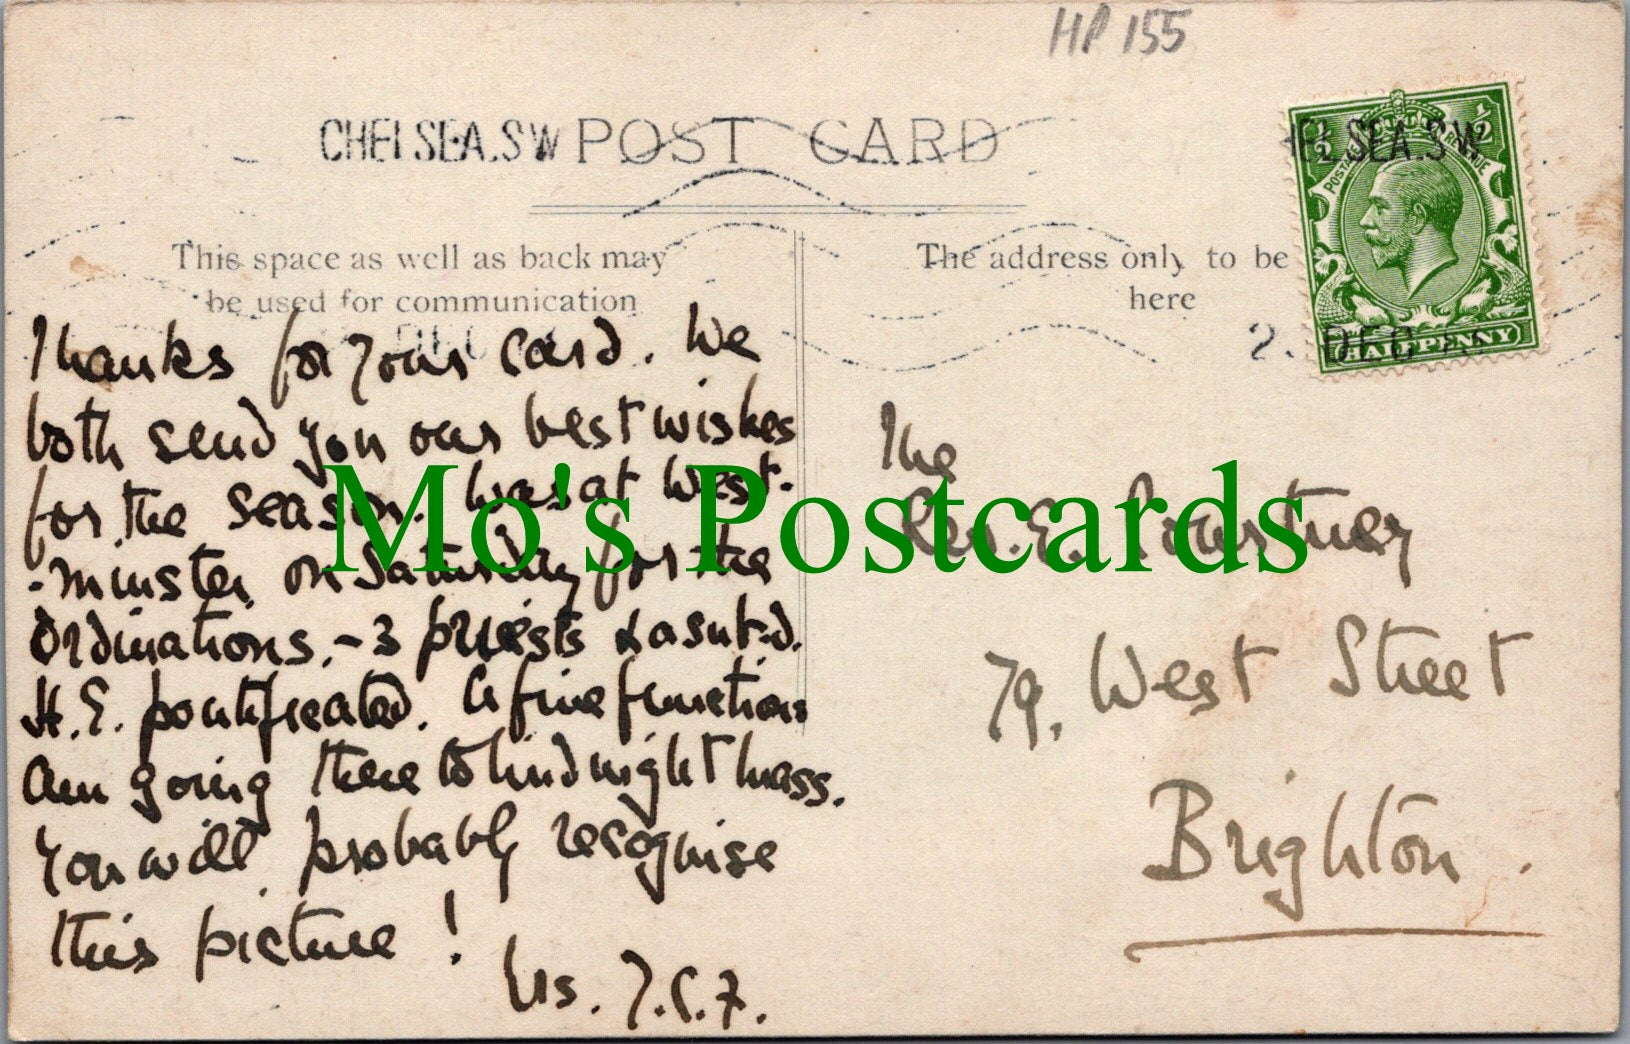 HP 155
CHELSEA.S.W
POST CARD
ELSEA.S.W
POSTAGE REVENUE
½ ½
HALFPENNY
2. DEC
This space as well as back may
be used for communication
The address only to be
here
Thanks for your card. We
both send you our best wishes
for the season. Was at West-
-minster on Saturday for the
Ordinations. - 3 priests &
H.E. pontificated. A fine function
Am going there to Midnight Mass.
You will probably recognise
this picture!
The
Rev. E. Courtney
79. West Street
Brighton.
Mo's Postcards